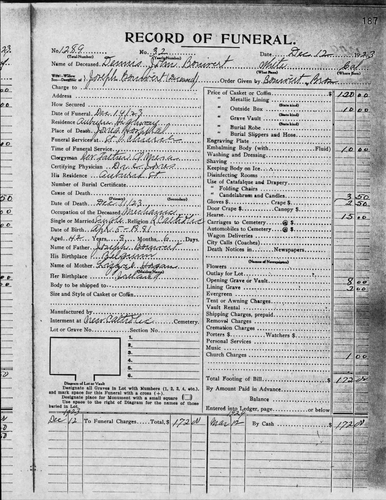 187
RECORD OF FUNERAL.
No. 1289 No. 32 Date Dec 12 1923
(Total Number) (Yearly Number)
Name of Deceased Dennis John Bouvert White Cal
(What Race) (Where From)
Joseph Bouvert Order Given by Bouvert
Charge to
Address
How Secured
Date of Funeral Dec 14/23
Residence Auburn Highway
Place of Death Jones Hospital
Funeral Services at
Time of Funeral Service
Clergyman Rev. Father
Certifying Physician Dr. Jones
His Residence Auburn St
Number of Burial Certificate
Cause of Death
Date of Death Dec 12/23
Occupation of the Deceased Mechanic
Single or Married Single Religion Catholic
Date of Birth Apr. 5-1881
Aged 42 Years 8 Months 6 Days
Name of Father Joseph Bouvert
His Birthplace Belgium
Name of Mother
Her Birthplace
Body to be shipped to
Size and Style of Casket or Coffin
Manufactured by
Interment at New Catholic Cemetery.
Lot or Grave No. Section No.
1.
2.
3.
4.
5.
6.
Diagram of Lot or Vault
Designate all Graves in Lot with Numbers (1, 2, 3, 4, etc.), and mark space for this Funeral with a cross (+)
Designate place for Monument with a small square
Use space to the right of Diagram for the names of those buried in Lot.
Price of Casket or Coffin $ 120 00
" Metallic Lining
" Outside Box 10 00
" Grave Vault
" Burial Robe
Burial Slippers and Hose
Engraving Plate
Embalming Body (with Fluid) 10 00
Washing and Dressing
Shaving
Keeping Body on Ice
Disinfecting Rooms
Use of Catafalque and Drapery
" Folding Chairs
" Candelabrum and Candles 3 50
Gloves $ Crape $ 2 50
Door Crape $ Canopy $
Hearse 15 00
Carriages to Cemetery @ $
Automobiles to Cemetery @ $
Wagon Deliveries @ $
City Calls (Coaches) @ $
Death Notices in Newspapers
(Names of Newspapers)
Flowers
Outlay for Lot
Opening Grave or Vault 8 00
Lining Grave 2 00
Evergreen
Tent or Awning Charges
Vault Rental
Shipping Charges, prepaid
Removal Charges
Cremation Charges
Porters $ Watchers $
Personal Services
Music
Church Charges 1 00
Total Footing of Bill $ 172 00
By Amount Paid in Advance
Balance
Entered into Ledger, page or below.
1923
Dec 12 To Funeral Charges Total, $ 172 00 Mar 12 By Cash $ 172 00